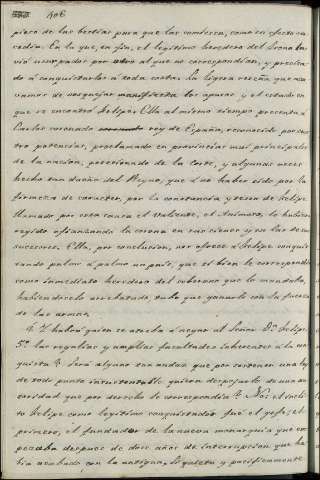 406
pieco de las bestias para que las comiesen, como en efecto su
cedia. En la que, en fin, el legitimo heredero del trono ha
via usurpado por otro al que le correspondian, y precisa
do á conquistarlos á toda costa. La ligera reseña que aca
vamos de bosquejar manifiesta los apuros, y el estado en
que se encontró Felipe. Ella al mismo tiempo presenta á
Carlos coronado rey de España, reconocido por cua
tro potencias, proclamado en provincias muy principales
de la nacion, posesionado de la Corte, y algunas veces
hecho un dueño del Reyno, que á no haber sido por la
firmeza de caracter, por la constancia y teson de Felipe
llamado por esta causa el valiente, el Animoso, lo hubiera
regido afianzando la corona en sus sienes y en las de sus
sucesores. Ella, por conclusion, nos ofrece á Felipe conquis
tando palmo á palmo un país, que si bien le correspondia
como inmediato heredero del soberano que lo mandaba,
habiendoselo arrebatado, tubo que ganarlo con la fuerza
de las armas.
¿Y habrá quien se atreba á negar al Señor Dn. Felipe
5º las regalias y amplias facultades inherentes á la con
quista? Será alguno tan audaz que por sostener una ley
de todo punto insustentable quiera despojarle de una au
toridad que por derecho le correspondia? No: el ínclito
Felipe como legitimo conquistador fué el gefe, el
primero, el fundador de la nueva monarquia que em
pezaba despues de doce años de interrupcion que ha
bia acabado con la antigua. Y quieta y pacificamente